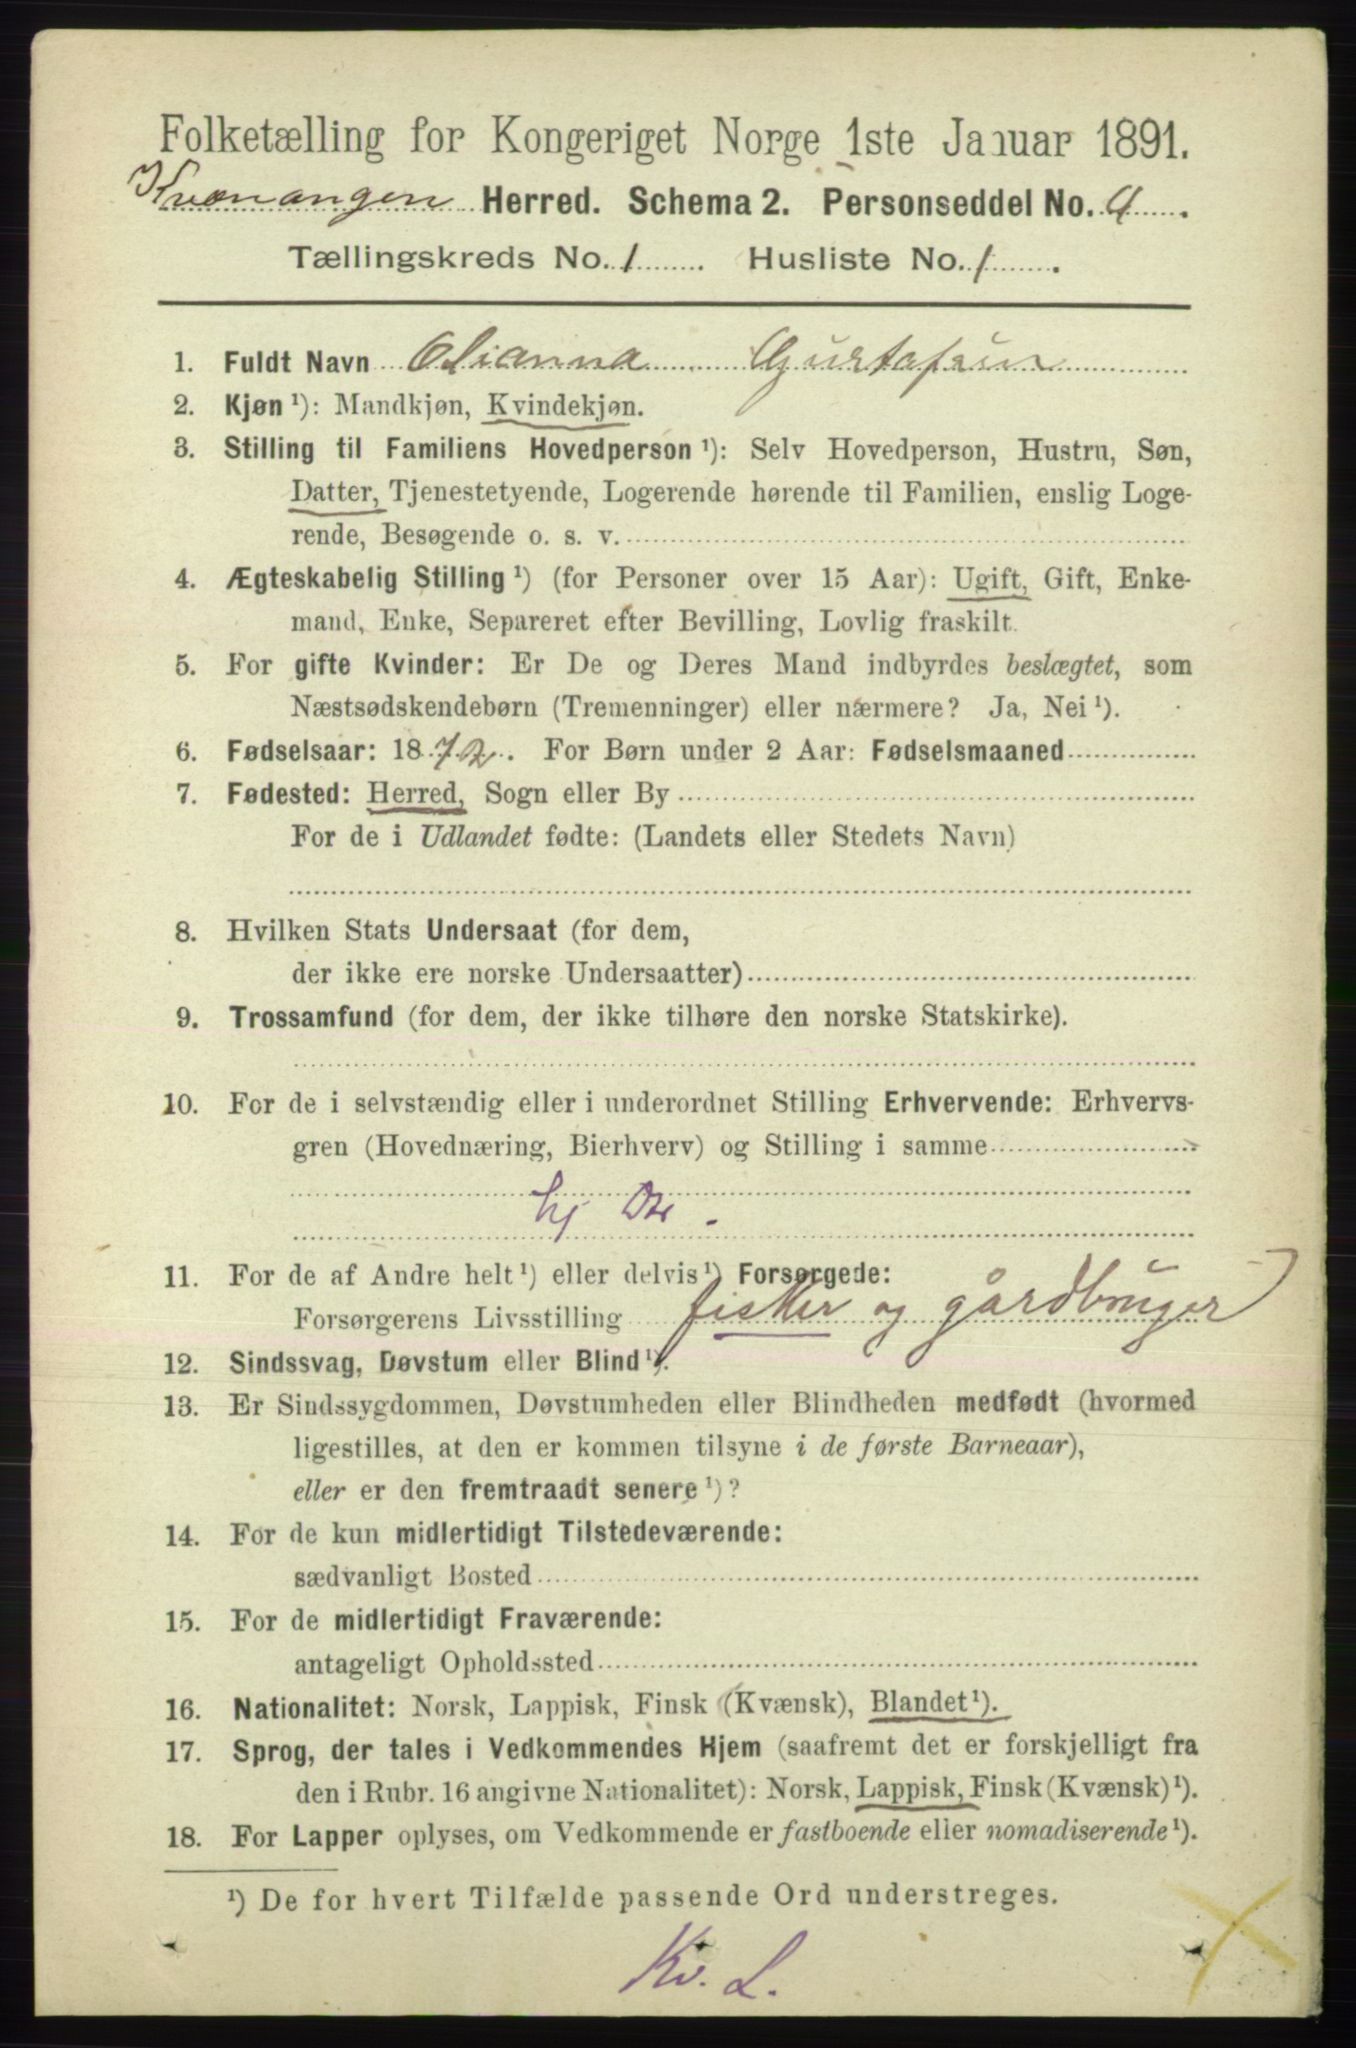 Folketælling for Kongeriget Norge 1ste Januar 1891.
Kvænangen Herred. Schema 2. Personseddel No. 4.
Tællingskreds No. 1. Husliste No. 1.
1. Fuldt Navn Olianna Gustafsen
2. Kjøn ¹): Mandkjøn, Kvindekjøn.
3. Stilling til Familiens Hovedperson ¹): Selv Hovedperson, Hustru, Søn,
Datter, Tjenestetyende, Logerende hørende til Familien, enslig Loge-
rende, Besøgende o. s. v.
4. Ægteskabelig Stilling ¹) (for Personer over 15 Aar): Ugift, Gift, Enke-
mand, Enke, Separeret efter Bevilling, Lovlig fraskilt.
5. For gifte Kvinder: Er De og Deres Mand indbyrdes beslægtet, som
Næstsødskendebørn (Tremenninger) eller nærmere? Ja, Nei ¹).
6. Fødselsaar: 1872. For Børn under 2 Aar: Fødselsmaaned
7. Fødested: Herred, Sogn eller By
For de i Udlandet fødte: (Landets eller Stedets Navn)
8. Hvilken Stats Undersaat (for dem,
der ikke ere norske Undersaatter)
9. Trossamfund (for dem, der ikke tilhøre den norske Statskirke).
10. For de i selvstændig eller i underordnet Stilling Erhvervende: Erhvervs-
gren (Hovednæring, Bierhverv) og Stilling i samme
hj Dtr.
11. For de af Andre helt ¹) eller delvis ¹) Forsørgede:
Forsørgerens Livsstilling fisker og gårdbruger
12. Sindssvag, Døvstum eller Blind ¹).
13. Er Sindssygdommen, Døvstumheden eller Blindheden medfødt (hvormed
ligestilles, at den er kommen tilsyne i de første Barneaar),
eller er den fremtraadt senere ¹)?
14. For de kun midlertidigt Tilstedeværende:
sædvanligt Bosted
15. For de midlertidigt Fraværende:
antageligt Opholdssted
16. Nationalitet: Norsk, Lappisk, Finsk (Kvænsk), Blandet ¹).
17. Sprog, der tales i Vedkommendes Hjem (saafremt det er forskjelligt fra
den i Rubr. 16 angivne Nationalitet): Norsk, Lappisk, Finsk (Kvænsk) ¹).
18. For Lapper oplyses, om Vedkommende er fastboende eller nomadiserende ¹).
¹) De for hvert Tilfælde passende Ord understreges.
Kv. L.